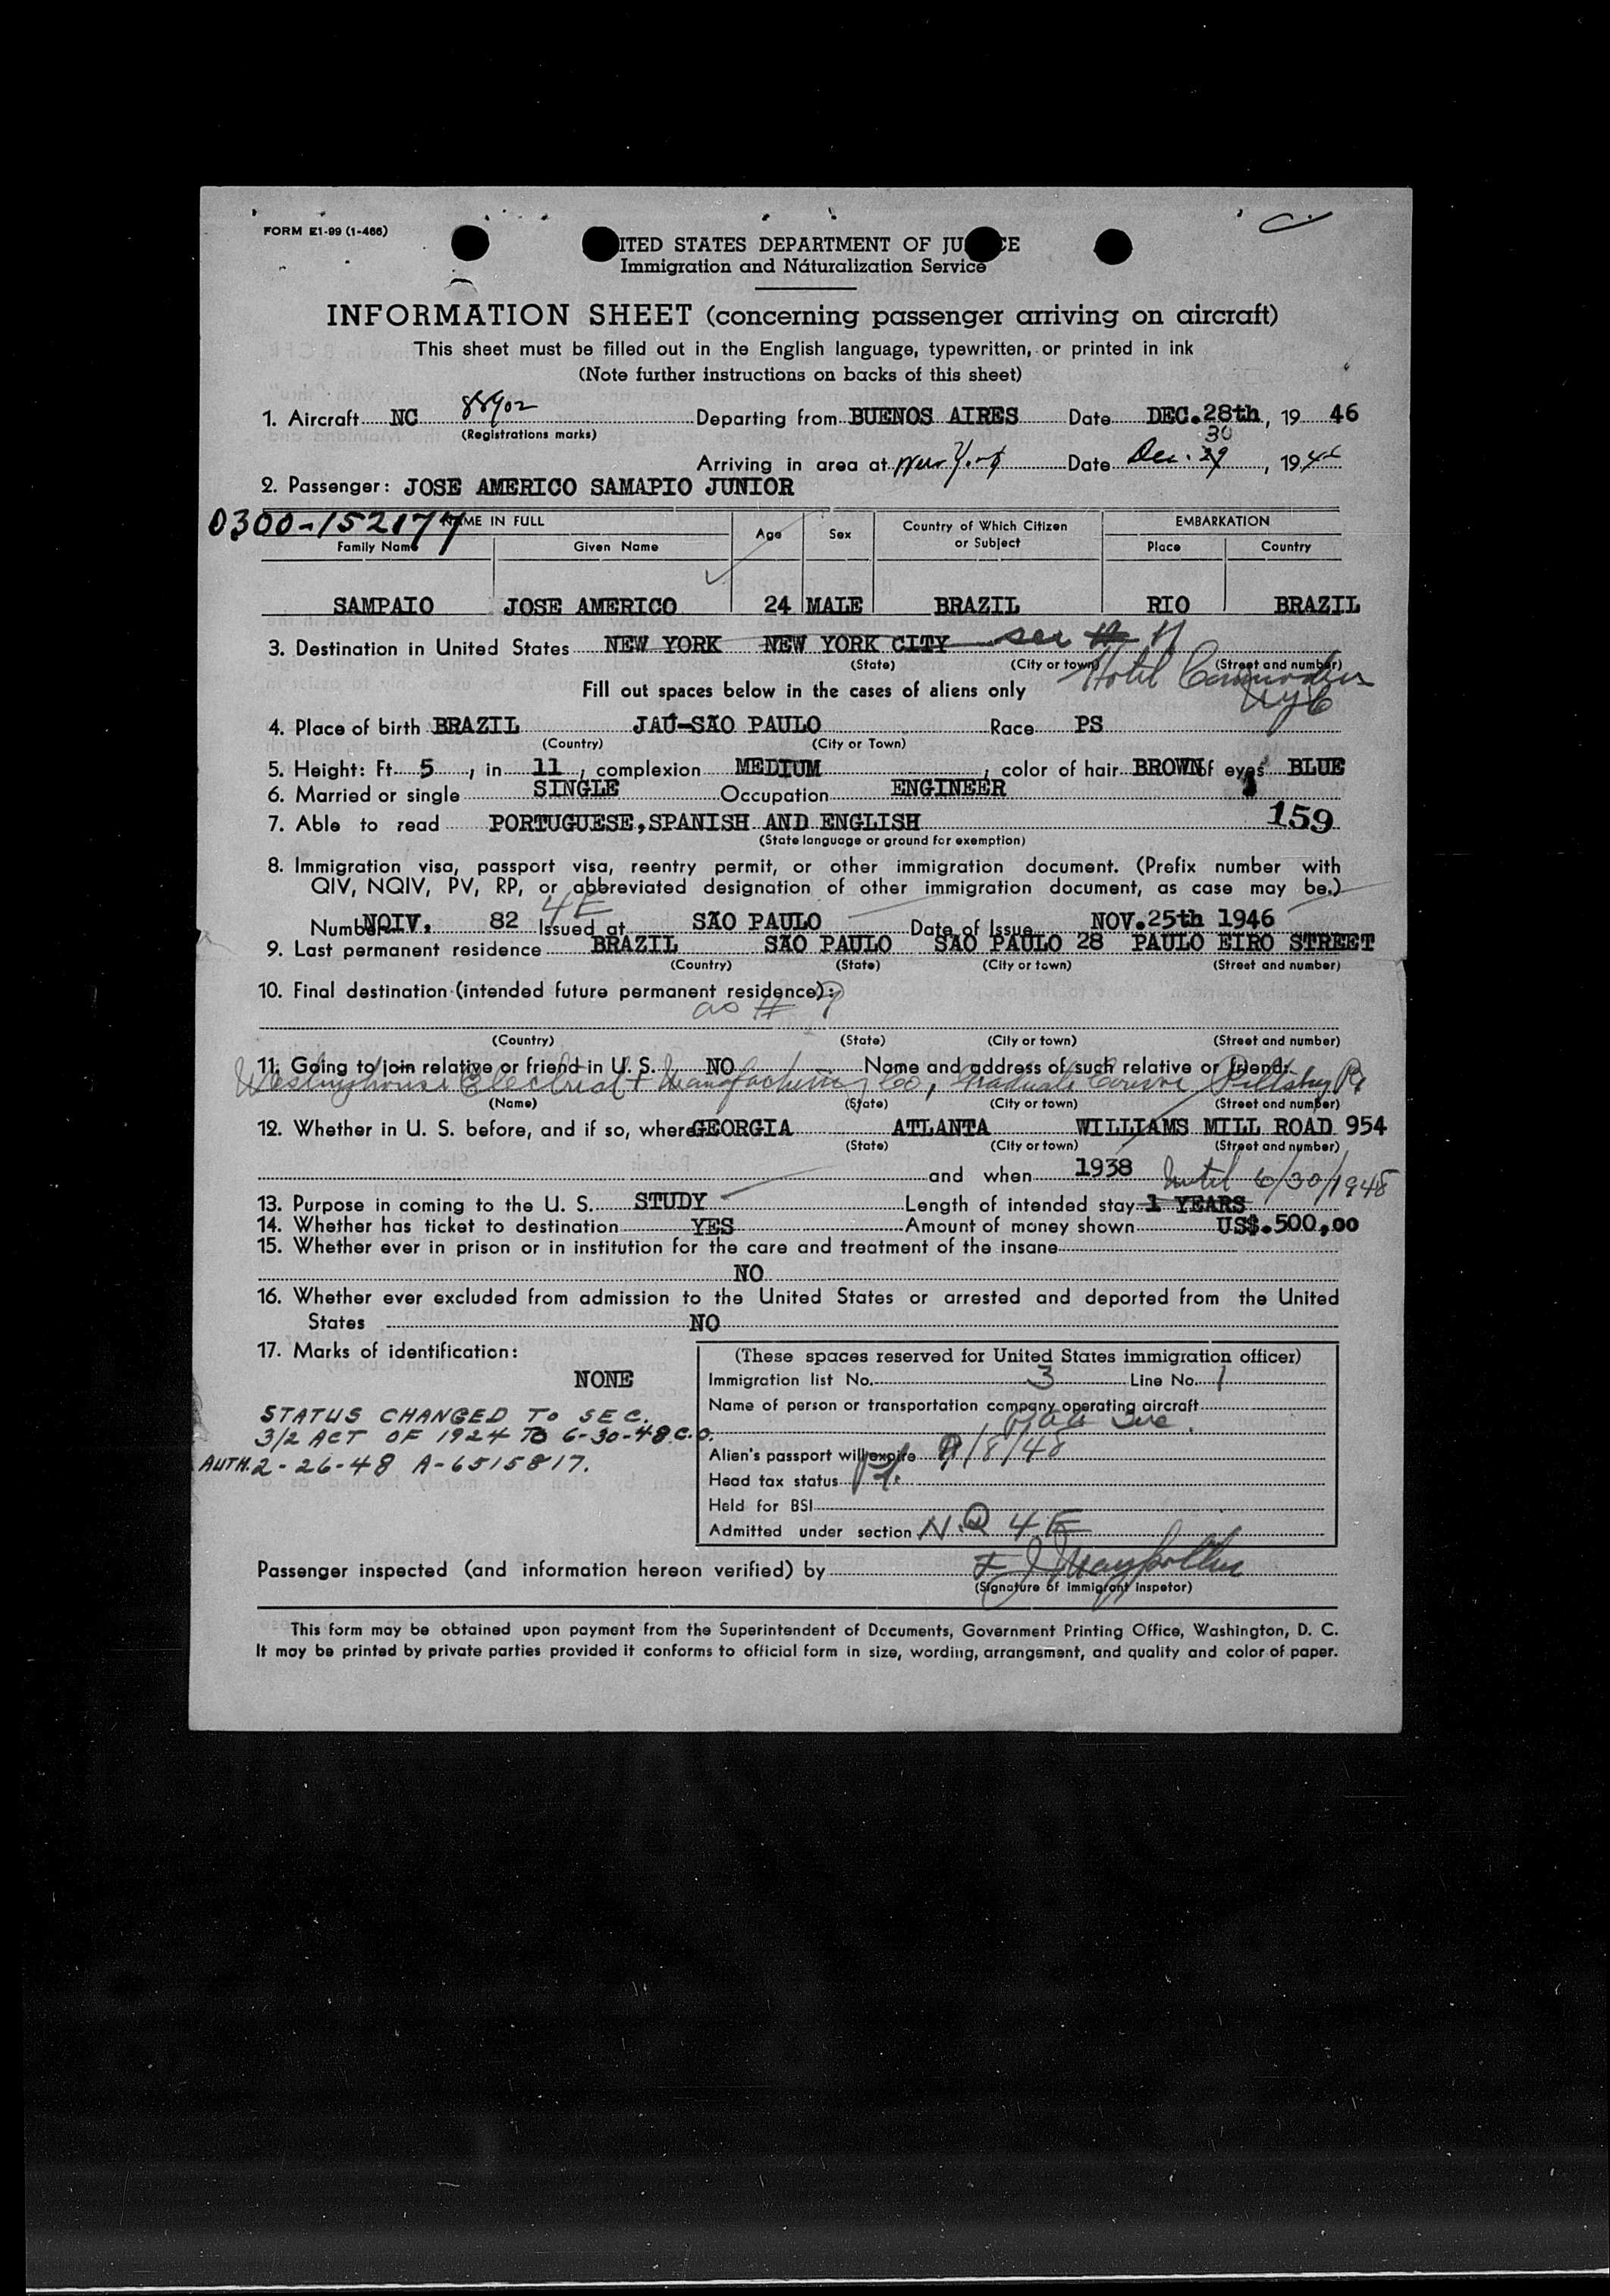 FORM E1-99 (1-466)
ITED STATES DEPARTMENT OF JU CE
Immigration and Naturalization Service
INFORMATION SHEET (concerning passenger arriving on aircraft)
This sheet must be filled out in the English language, typewritten, or printed in ink
(Note further instructions on backs of this sheet)
1. Aircraft NC 88902 Departing from BUENOS AIRES Date DEC.28th, 19 46
(Registrations marks)
30
Arriving in area at New York Date Dec. 29, 1946
2. Passenger: JOSE AMERICO SAMAPIO JUNIOR
0300-152177 NAME IN FULL Age Sex Country of Which Citizen or Subject EMBARKATION
Family Name Given Name Place Country
SAMPAIO JOSE AMERICO 24 MALE BRAZIL RIO BRAZIL
3. Destination in United States NEW YORK NEW YORK CITY see # 11
(State) (City or town) (Street and number)
Hotel Commodore
NYC
Fill out spaces below in the cases of aliens only
4. Place of birth BRAZIL JAÚ-SÃO PAULO Race PS
(Country) (City or Town)
5. Height: Ft. 5, in 11, complexion MEDIUM, color of hair BROWN of eyes BLUE
6. Married or single SINGLE Occupation ENGINEER
7. Able to read PORTUGUESE, SPANISH AND ENGLISH 159
(State language or ground for exemption)
8. Immigration visa, passport visa, reentry permit, or other immigration document. (Prefix number with
QIV, NQIV, PV, RP, or abbreviated designation of other immigration document, as case may be.)
4E
Number NQIV. 82 Issued at SÃO PAULO Date of Issue NOV.25th 1946
9. Last permanent residence BRAZIL SÃO PAULO SÃO PAULO 28 PAULO EIRO STREET
(Country) (State) (City or town) (Street and number)
10. Final destination (intended future permanent residence):
as # 9
(Country) (State) (City or town) (Street and number)
11. Going to join relative or friend in U. S. NO Name and address of such relative or friend:
Westinghouse Electrical & Manufacturing Co, Graduate Course Pittsburg Pa
(Name) (State) (City or town) (Street and number)
12. Whether in U. S. before, and if so, where GEORGIA ATLANTA WILLIAMS MILL ROAD 954
(State) (City or town) (Street and number)
and when 1938 until 6/30/1948
13. Purpose in coming to the U. S. STUDY Length of intended stay 1 YEARS
14. Whether has ticket to destination YES Amount of money shown US$.500,00
15. Whether ever in prison or in institution for the care and treatment of the insane
NO
16. Whether ever excluded from admission to the United States or arrested and deported from the United
States NO
17. Marks of identification:
NONE
STATUS CHANGED TO SEC.
3/2 ACT OF 1924 TO 6-30-48 C.O.
AUTH. 2-26-48 A-6515817.
(These spaces reserved for United States immigration officer)
Immigration list No. 3 Line No. 1
Name of person or transportation company operating aircraft
PAA Inc.
Alien's passport will expire 9/8/48
Head tax status
Held for BSI
Admitted under section N.Q 4E
Passenger inspected (and information hereon verified) by
(Signature of Immigrant Inspetor)
This form may be obtained upon payment from the Superintendent of Documents, Government Printing Office, Washington, D. C.
It may be printed by private parties provided it conforms to official form in size, wording, arrangement, and quality and color of paper.